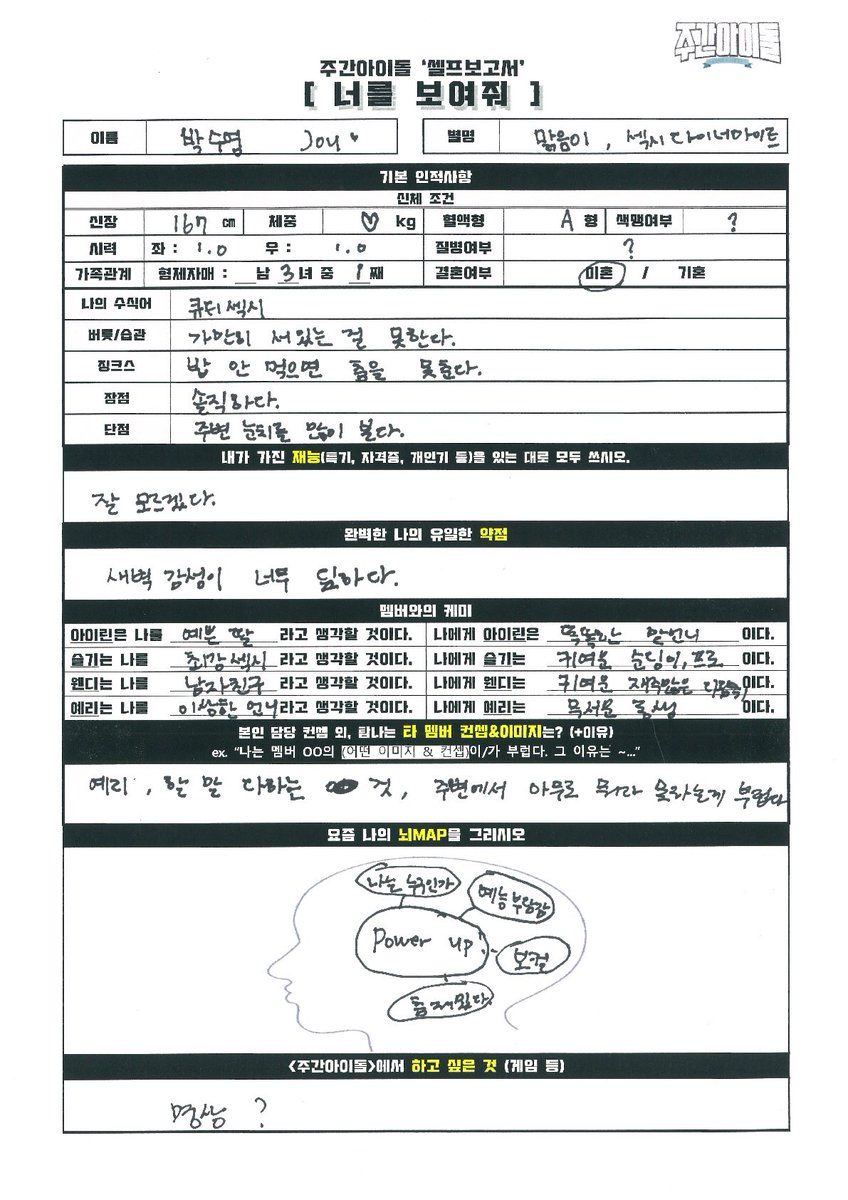 주간아이돌
주간아이돌 '셀프보고서'
[ 너를 보여줘 ]
이름 박수영 Joy♥ 별명 맑음이, 섹시다이너마이트
기본 인적사항
신체 조건
신장 167 cm 체중 ♡ kg 혈액형 A 형 색맹여부 ?
시력 좌 : 1.0 우 : 1.0 질병여부 ?
가족관계 형제자매 : __남 3녀 중 1째 결혼여부 미혼 / 기혼
나의 수식어 큐티섹시
버릇/습관 가만히 서있는 걸 못한다.
징크스 밥 안 먹으면 춤을 못춘다.
장점 솔직하다.
단점 주변 눈치를 많이 본다.
내가 가진 재능(특기, 자격증, 개인기 등)을 있는 대로 모두 쓰시오.
잘 모르겠다.
완벽한 나의 유일한 약점
새벽 감성이 너무 심하다.
멤버와의 케미
아이린은 나를 예쁜 딸 라고 생각할 것이다. 나에게 아이린은 똑똑한 맏언니 이다.
슬기는 나를 최강섹시 라고 생각할 것이다. 나에게 슬기는 귀여운 순딩이, 프로 이다.
웬디는 나를 남자친구 라고 생각할 것이다. 나에게 웬디는 귀여운 재주많은 이다.
예리는 나를 이상한 언니 라고 생각할 것이다. 나에게 예리는 무서운 동생 이다.
본인 담당 컨셉 외, 탐나는 타 멤버 컨셉&이미지는? (+이유)
ex. "나는 멤버 OO의 (어떤 이미지 & 컨셉)이/가 부럽다. 그 이유는 ~..."
예리, 할 말 다하는 것, 주변에서 아무로 뭐라 못하는게 부럽다
요즘 나의 뇌MAP을 그리시오
나는 누구인가
예능 부담감
Power up
보컬
춤 재밌다.
<주간아이돌>에서 하고 싶은 것 (게임 등)
명상 ?